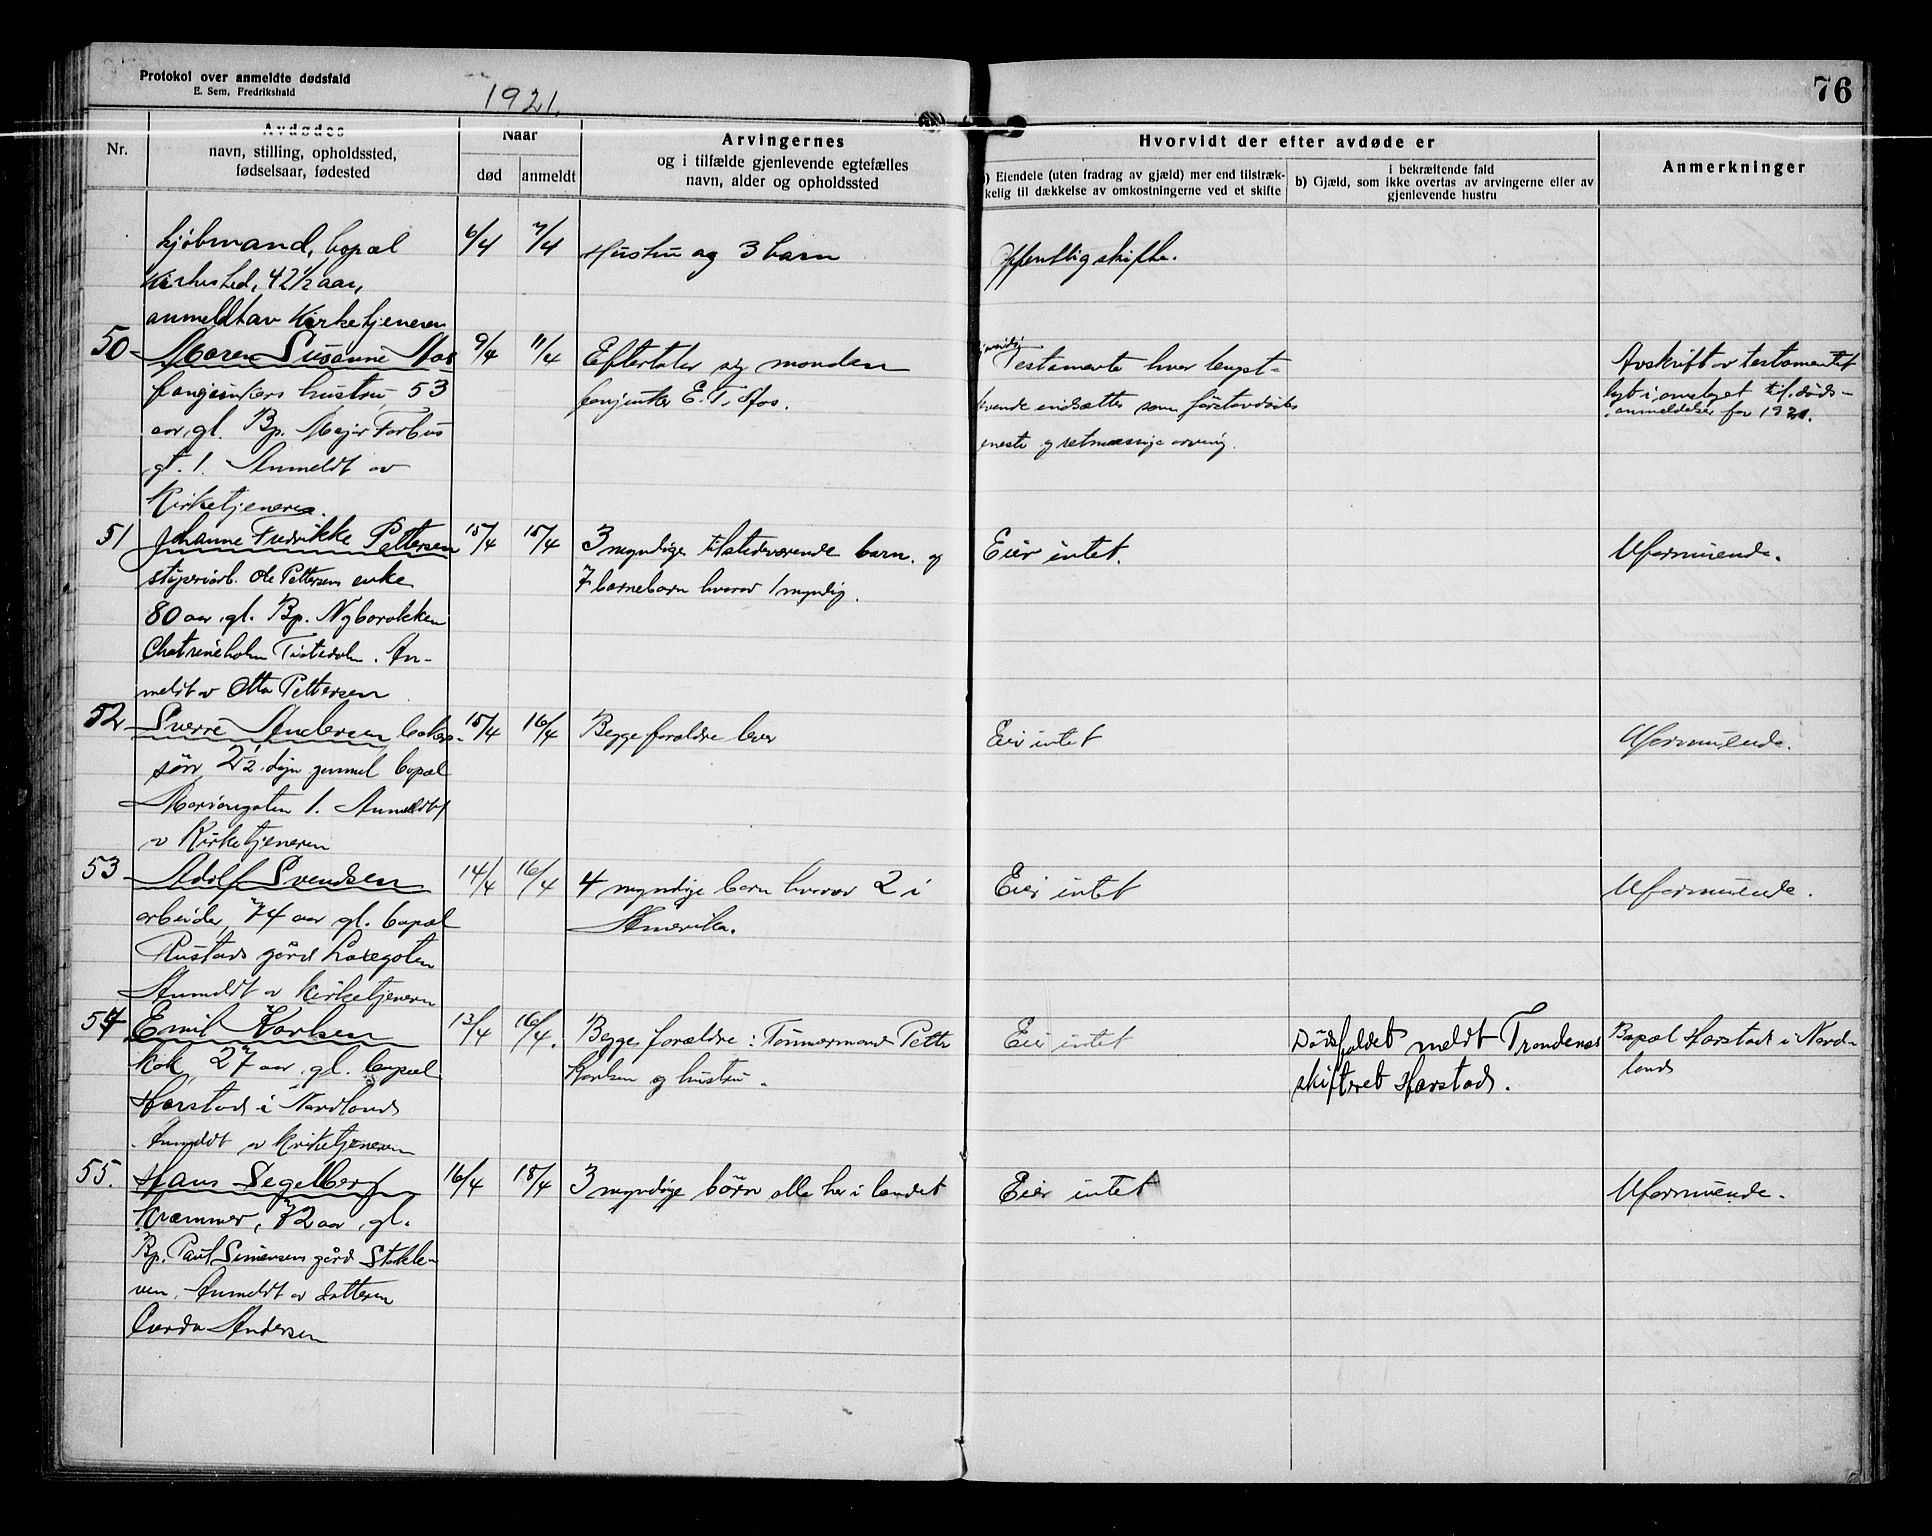 Protokol over anmeldte dødsfald
E. Sem, Fredrikshald
1921.
76
Nr.
Avdødes
navn, stilling, opholdssted,
fødselsaar, fødested
Naar
død
anmeldt
Arvingernes
og i tilfælde gjenlevende egtefælles
navn, alder og opholdssted
Hvorvidt der efter avdøde er
) Eiendele (uten fradrag av gjæld) mer end tilstræk-
kelig til dækkelse av omkostningerne ved et skifte
i bekræftende fald
b) Gjæld, som ikke overtas av arvingerne eller av
gjenlevende hustru
Anmerkninger
kjøbmand, bopæl
Kirkested, 42 1/2 aar,
anmeldt av Kirketjeneren
6/4
7/4
Hustru og 3 barn
Offentlig skifte.
50
Maren Susanne Aas
fanejunkers hustru, 53
aar, gl. Bp. Major Forbus
gt. 1. Anmeldt av
Kirketjeneren.
9/4
11/4
Efterlater sig manden
fanejunker E. T. Aas.
Testamente hvor lengst-
levende indsættes som førstavdødes
eneste og retmæssige arving.
Avskrift av testamentet
lagt i omslaget til døds-
anmeldelser for 1921.
51
Johanne Fredrikke Pettersen
støperiarb. Ole Pettersens enke
80 aar gl. Bp. Nybrakken
Chatrineholm Tistedalen. An-
meldt av Otto Pettersen
15/4
15/4
3 myndige tilstedeværende barn. og
7 barnebarn hvorav 1 myndig.
Eier intet.
Uformuende.
52
Sverre Andersen, bakers-
søn, 2 1/2 døgn gammel bopæl
Mariangaten 1. Anmeldt
av Kirketjeneren
15/4
16/4
Begge forældre lever
Eier intet
Uformuende.
53
Adolf Svendsen
arbeider, 74 aar gl. bopæl
Rustads gård Laxegaten
Anmeldt av Kirketjeneren
14/4
16/4
4 myndige barn hvorav 2 i
Amerika.
Eier intet
Uformuende.
54
Emil Karlsen
Kok, 27 aar, gl. bopæl
Harstad i Nordland
Anmeldt av Kirketjeneren
13/4
16/4.
Begge forældre: Tømmermand Petter
Karlsen og hustru.
Eier intet
Dødsfaldet meldt Trondenes
skifteret Harstad.
Bopæl Harstad i Nord-
land
55.
Hans Segelberg
Kræmmer, 72 aar, gl.
Bp. Paul Simensens gård Stakle-
ven. Anmeldt av datteren
Carda Andersen
16/4
18/4
3 myndige børn alle her i landet
Eier intet
Uformuende.